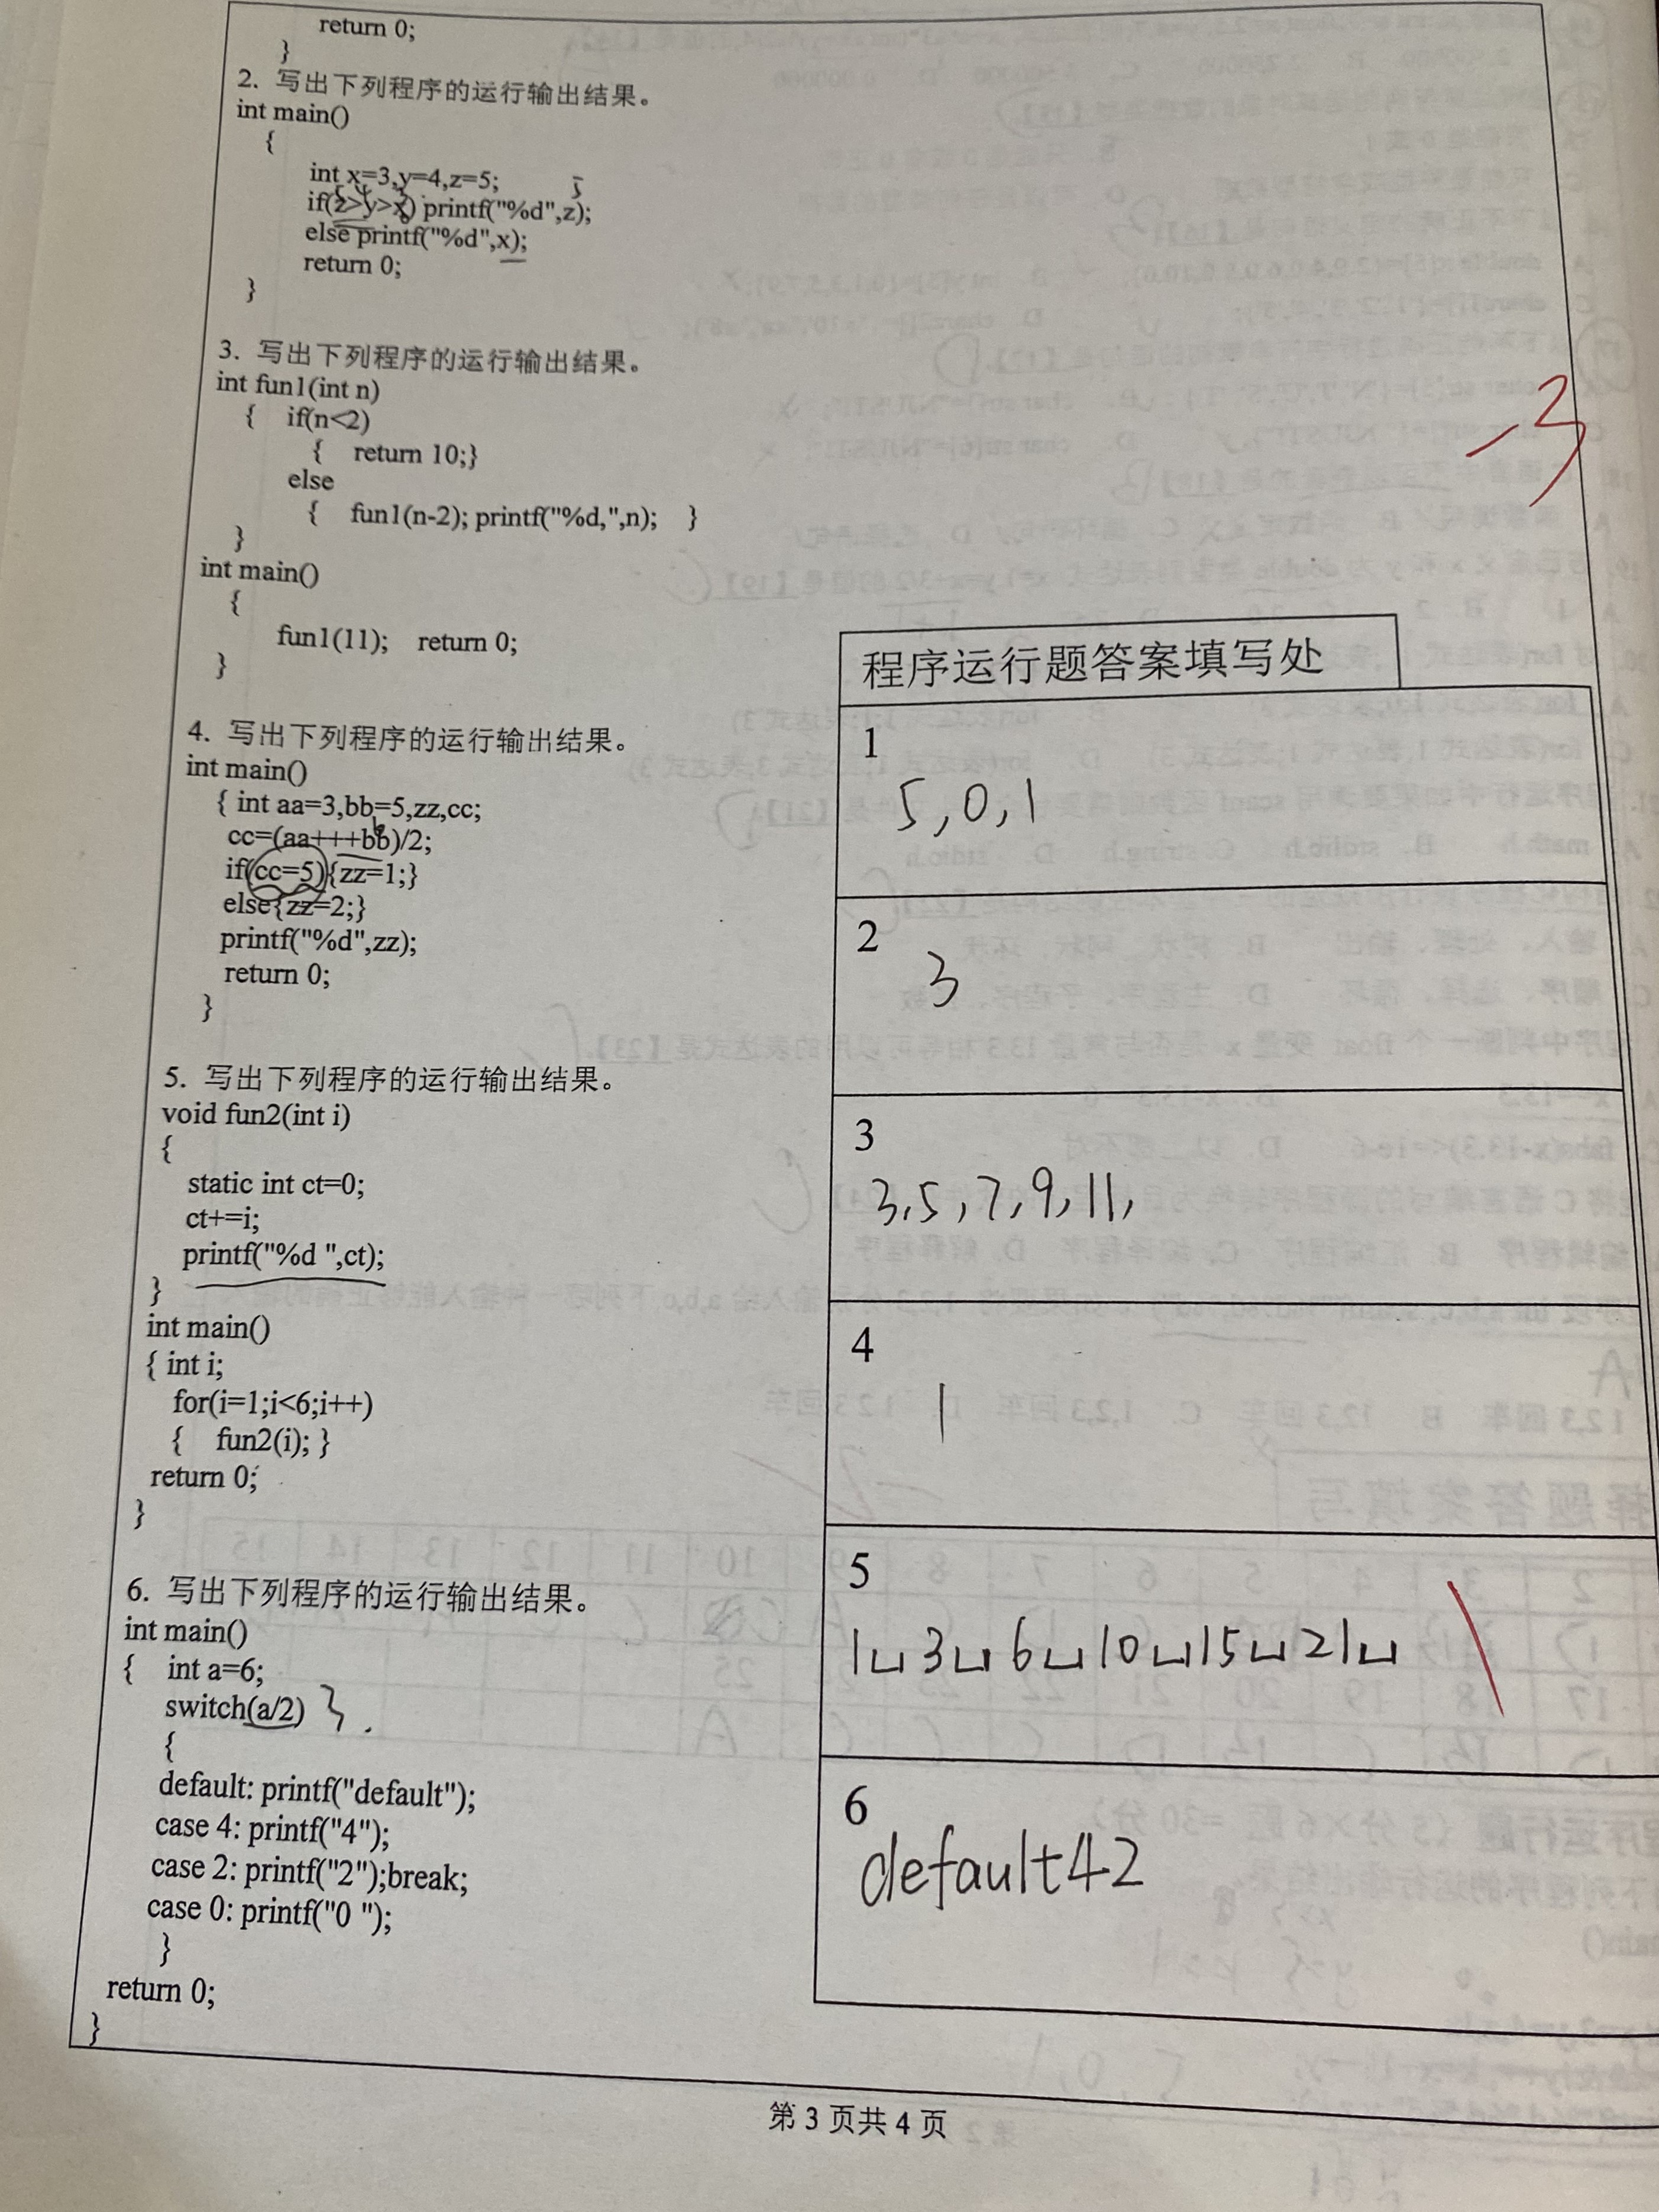 return 0;
}
2. 写出下列程序的运行输出结果。
int main()
{
int x=3,y=4,z=5;
5
if(z>y>x) printf("%d",z);
else printf("%d",x);
return 0;
}
3. 写出下列程序的运行输出结果。
int fun1(int n)
{ if(n<2)
{ return 10;}
else
{ fun1(n-2); printf("%d,",n); }
}
int main()
{
fun1(11); return 0;
}
-3
4. 写出下列程序的运行输出结果。
int main()
{ int aa=3,bb=5,zz,cc;
cc=(aa+++bb)/2;
if(cc=5){zz=1;}
else{zz=2;}
printf("%d",zz);
return 0;
}
5. 写出下列程序的运行输出结果。
void fun2(int i)
{
static int ct=0;
ct+=i;
printf("%d ",ct);
}
int main()
{ int i;
for(i=1;i<6;i++)
{ fun2(i); }
return 0;
}
6. 写出下列程序的运行输出结果。
int main()
{ int a=6;
switch(a/2) 3
{
default: printf("default");
case 4: printf("4");
case 2: printf("2");break;
case 0: printf("0 ");
}
return 0;
}
程序运行题答案填写处
1
5,0,1
2
3
3
3,5,7,9,11,
4
1
5
1␣3␣6␣10␣15␣21␣
6
default42
第 3 页共 4 页